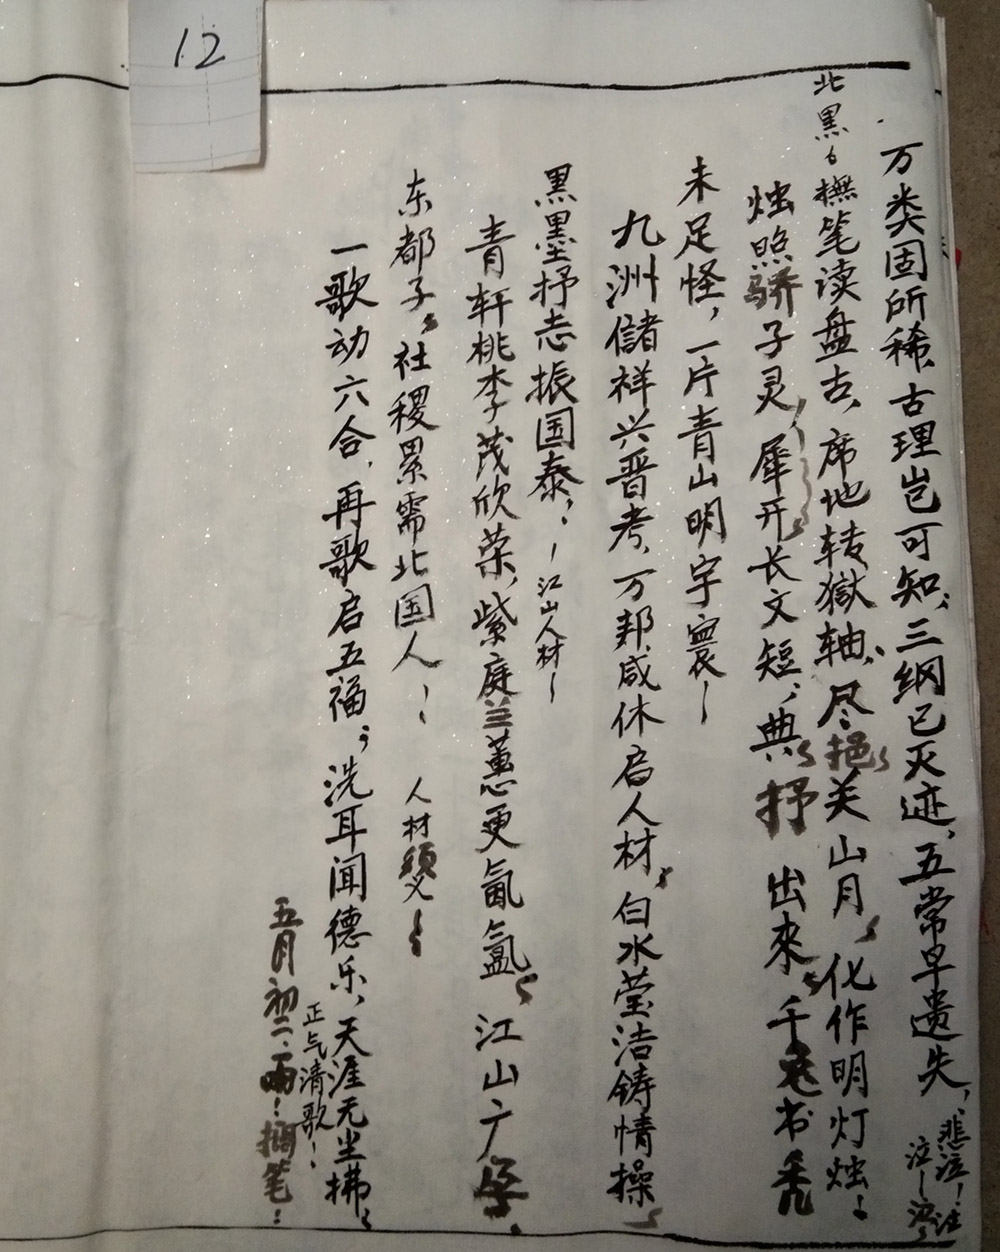 12
万类固所稀,古理岂可知,三纲已灭迹,五常早遗失,
悲泣!
泣!
北黑,撫笔读盘古,席地转嶽轴,尽挹关山月,化作明灯烛!
烛照骄子灵,犀开长文短,典抒出來,千老书秃
未足怪,一片青山明宇寰!
九洲儲祥兴晋考,万邦咸休启人材,白水莹洁铸情操
黑墨抒志振国泰,!江山人材!
青轩桃李茂欣荣,紫庭兰蕙更氤氲,江山广
东都子,社稷累需北国人!
人材須义!
一歌动六合,再歌启五福,洗耳闻德乐,天涯无尘拂,
正气清歌!
五月初二,雨!搁笔!